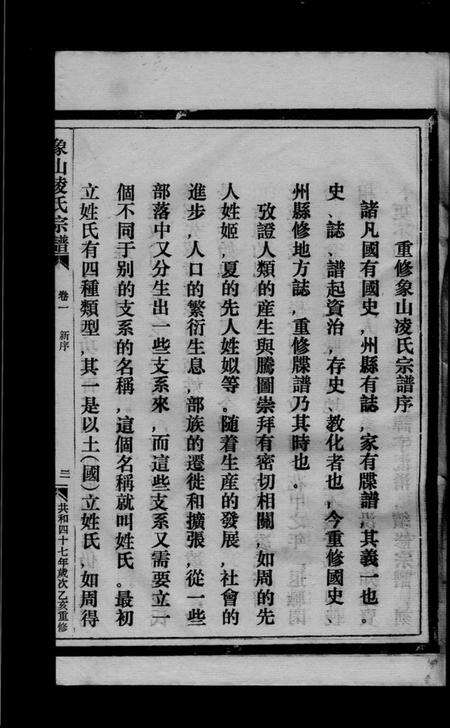 重修象山凌氏宗譜序
諸凡國有國史，州縣有誌，家有牒譜，其義一也。
史、誌、譜起資治，存史、教化者也，今重修國史、
州縣修地方誌，重修牒譜乃其時也。
攷證人類的産生與騰圖崇拜有密切相關，如周的先
人姓姬，夏的先人姓姒等。随着生産的發展，社會的
進步，人口的繁衍生息，部族的遷徙和擴張，從一些
部落中又分生出一些支系來，而這些支系又需要立一
個不同于别的支系的名稱，這個名稱就叫姓氏。最初
立姓氏有四種類型，其一是以土（國）立姓氏，如周得
象山凌氏宗譜
卷一
新序
三
共和四十七年歲次乙亥重修